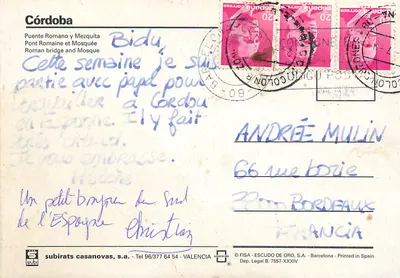 Córdoba
Puente Romano y Mezquita
Pont Romain et Mosquée
Roman bridge and Mosque
Bidu,
Cette semaine je suis
partie avec papa pour
travailler à Cordou
en Espagne. Il y fait
Je vous embrasse.
Un petit bonjour du sud
de l'Espagne Christian
ANDRÉE MULIN
66 rue
BORDEAUX
FRANCIA
20
20
subirats casanovas, s.a. - Tel 96/377 64 54 - VALENCIA
© FISA - ESCUDO DE ORO, S.A. - Barcelona - Printed in Spain
Dep. Legal B. 7657-XXXIV